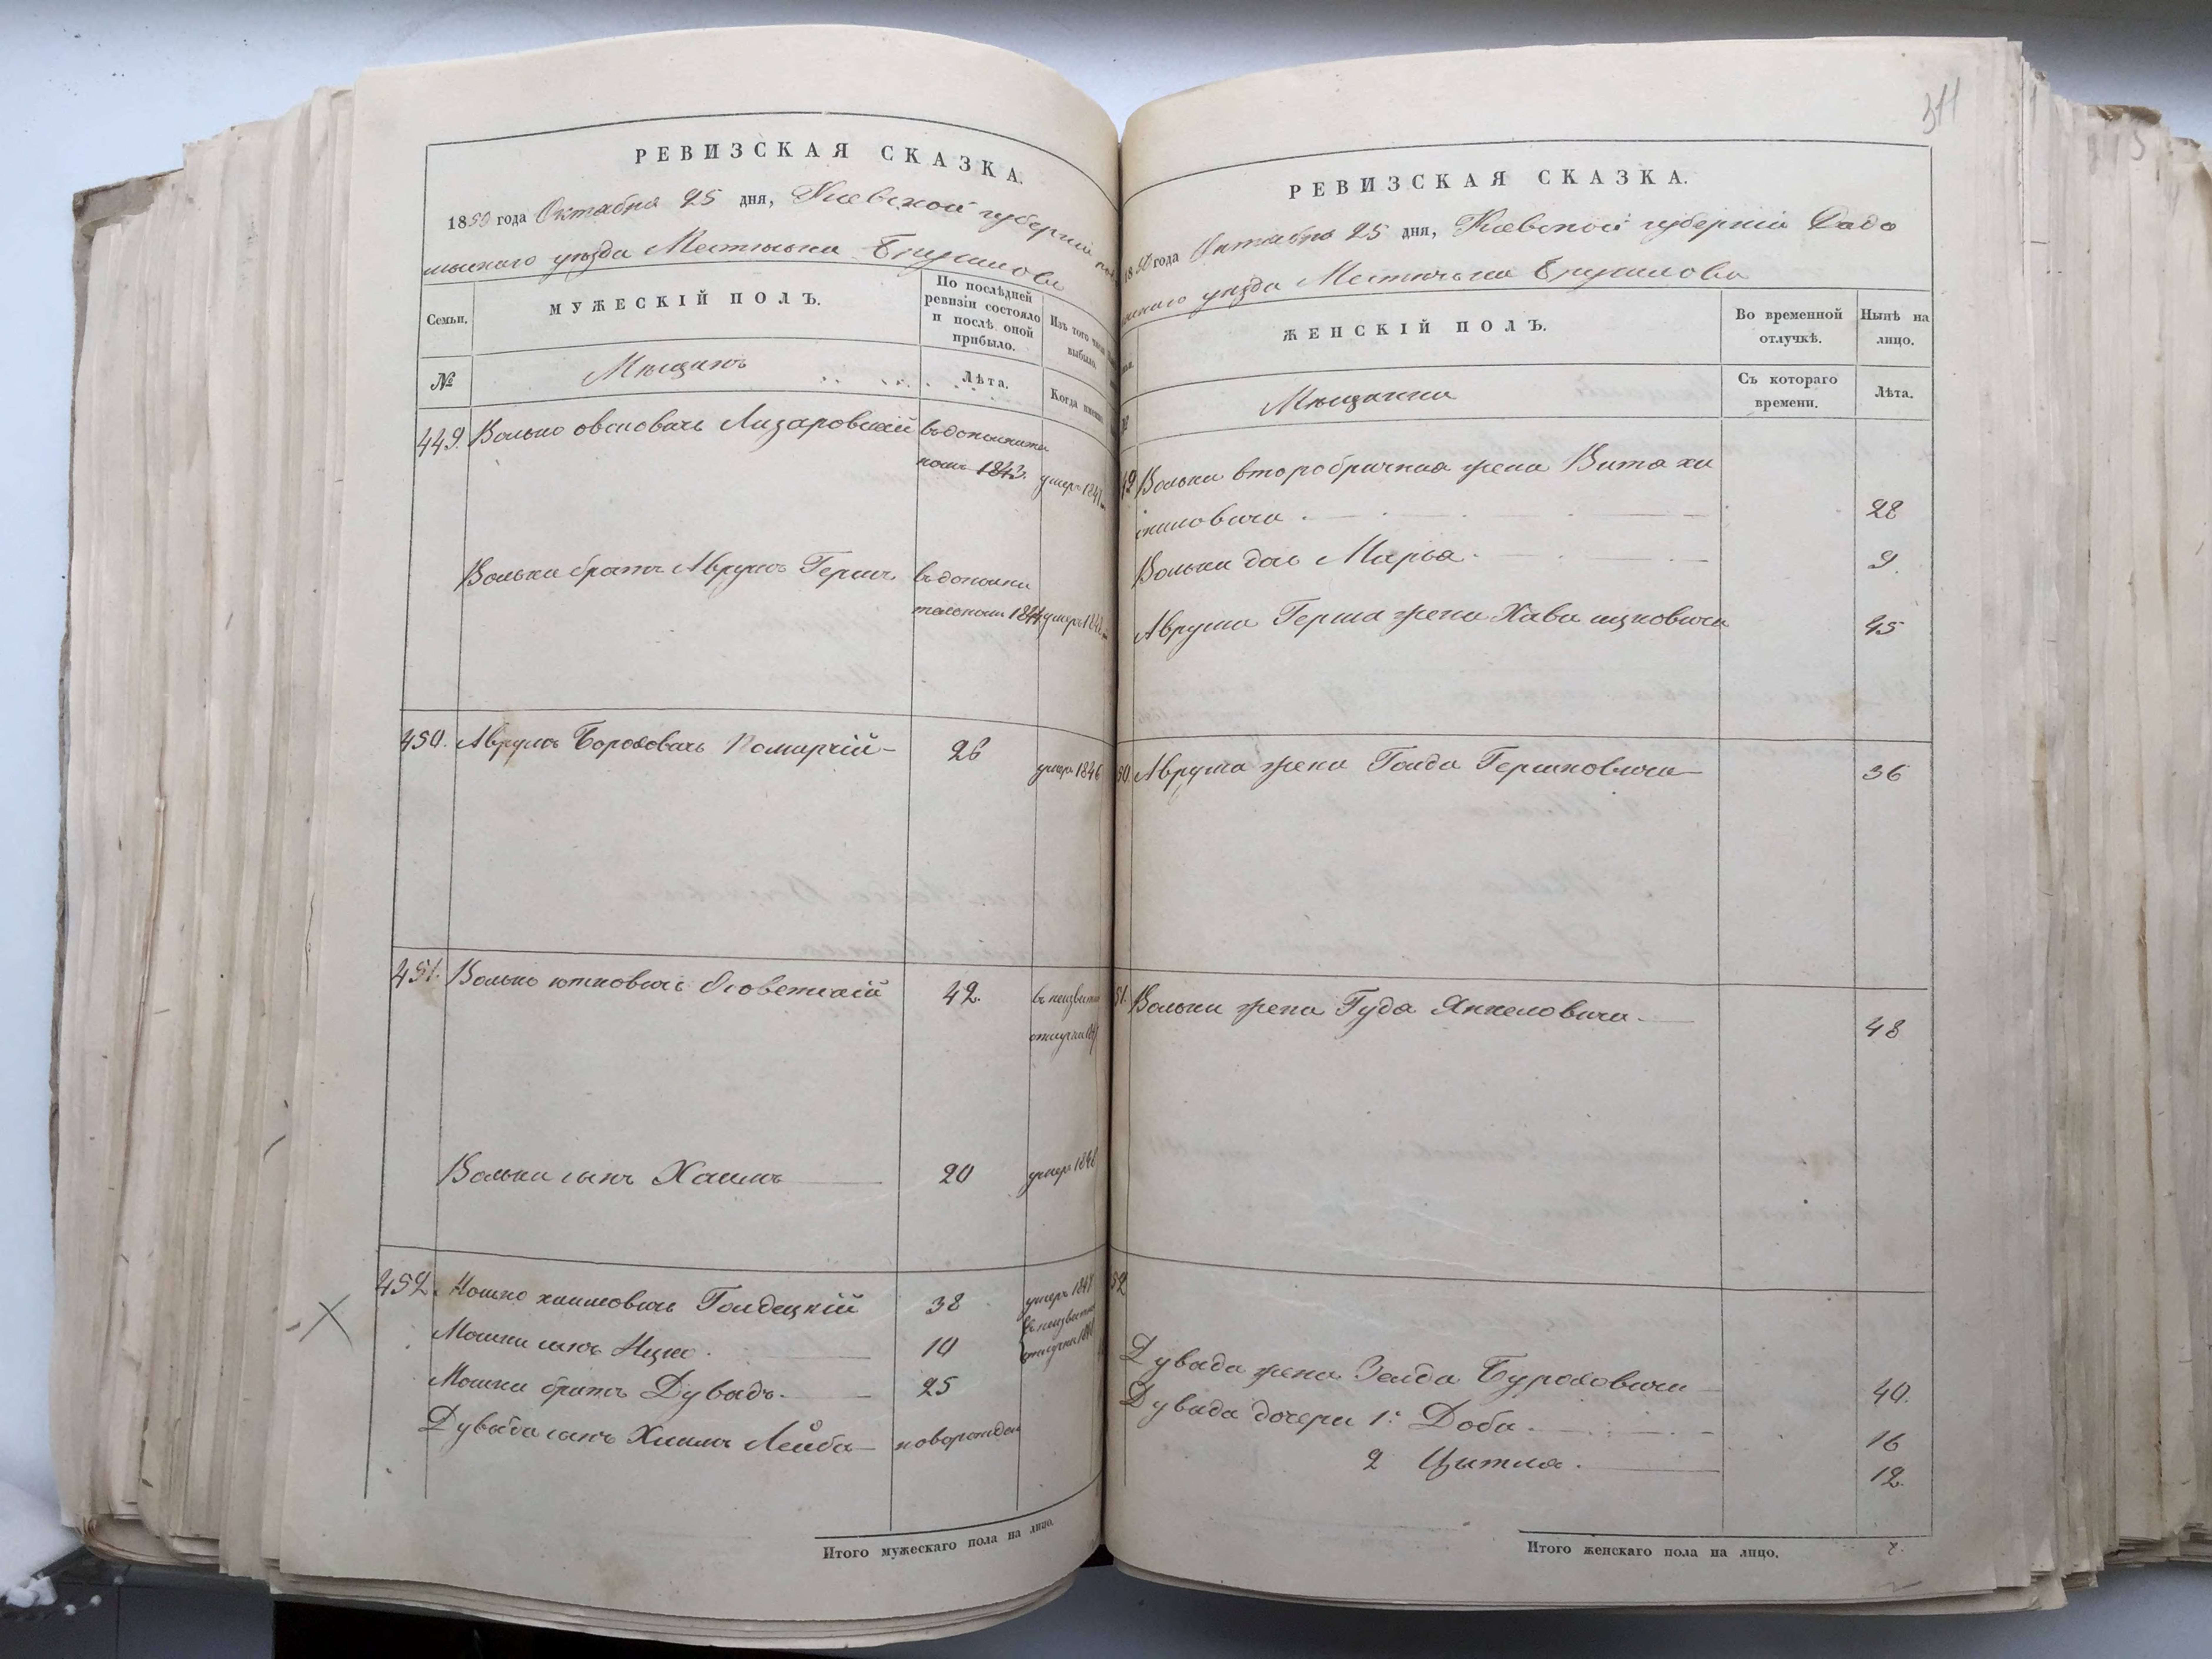 РЕВИЗСКАЯ СКАЗКА.
1850 года Октября 25 дня, Киевской губерніи
уѣзда Местечька Брусилова
Семьи.
МУЖЕСКІЙ ПОЛЪ.
По послѣдней
ревизіи состояло
и послѣ оной
прибыло.
Изъ того числа
выбыло.
№
Мещанъ
Лѣта.
Когда именно
449. Волько овсіовичъ Лизаровскій въдополнитель
номъ 1843. умеръ 1841
Вольки братъ Аврумъ Гершъ въдополни
тельномъ 1844 умеръ
450. Аврумъ Бороховичъ Комарчій 26 умеръ 1846
451. Волько 42. въ неизвѣстн
отлучки
Вольки сынъ Хаимъ 20 умеръ 1848
452. Мошко хаимовичъ Голдецкій 38 умеръ
Мошки сынъ Ицко. 10 въ неизвѣстн
отлучки
Мошки братъ Дувидъ. 25
Дувида сынъ Хаимъ Лейба новорожден
Итого мужескаго пола на лицо.
311
РЕВИЗСКАЯ СКАЗКА.
1850 года Октября 25 дня, Киевской губерніи Радо
уѣзда Местечька Брусилова
ЖЕНСКІЙ ПОЛЪ.
Во временной
отлучкѣ.
Нынѣ на
лицо.
№
Мещанки
Съ котораго
времени.
Лѣта.
Вольки второбрачная жена Вита ха
28
Вольки дочь Марья. 9.
Аврума Герша жена Хава ицковича 45
50. Аврума жена Голда Гершковича 36
51. Вольки жена Гуда Янкеловича. 48
52
Дувида жена Зелда Буроховича 40.
Дувида дочери 1. Доба. 16
2 Цитля. 12.
Итого женскаго пола на лицо.